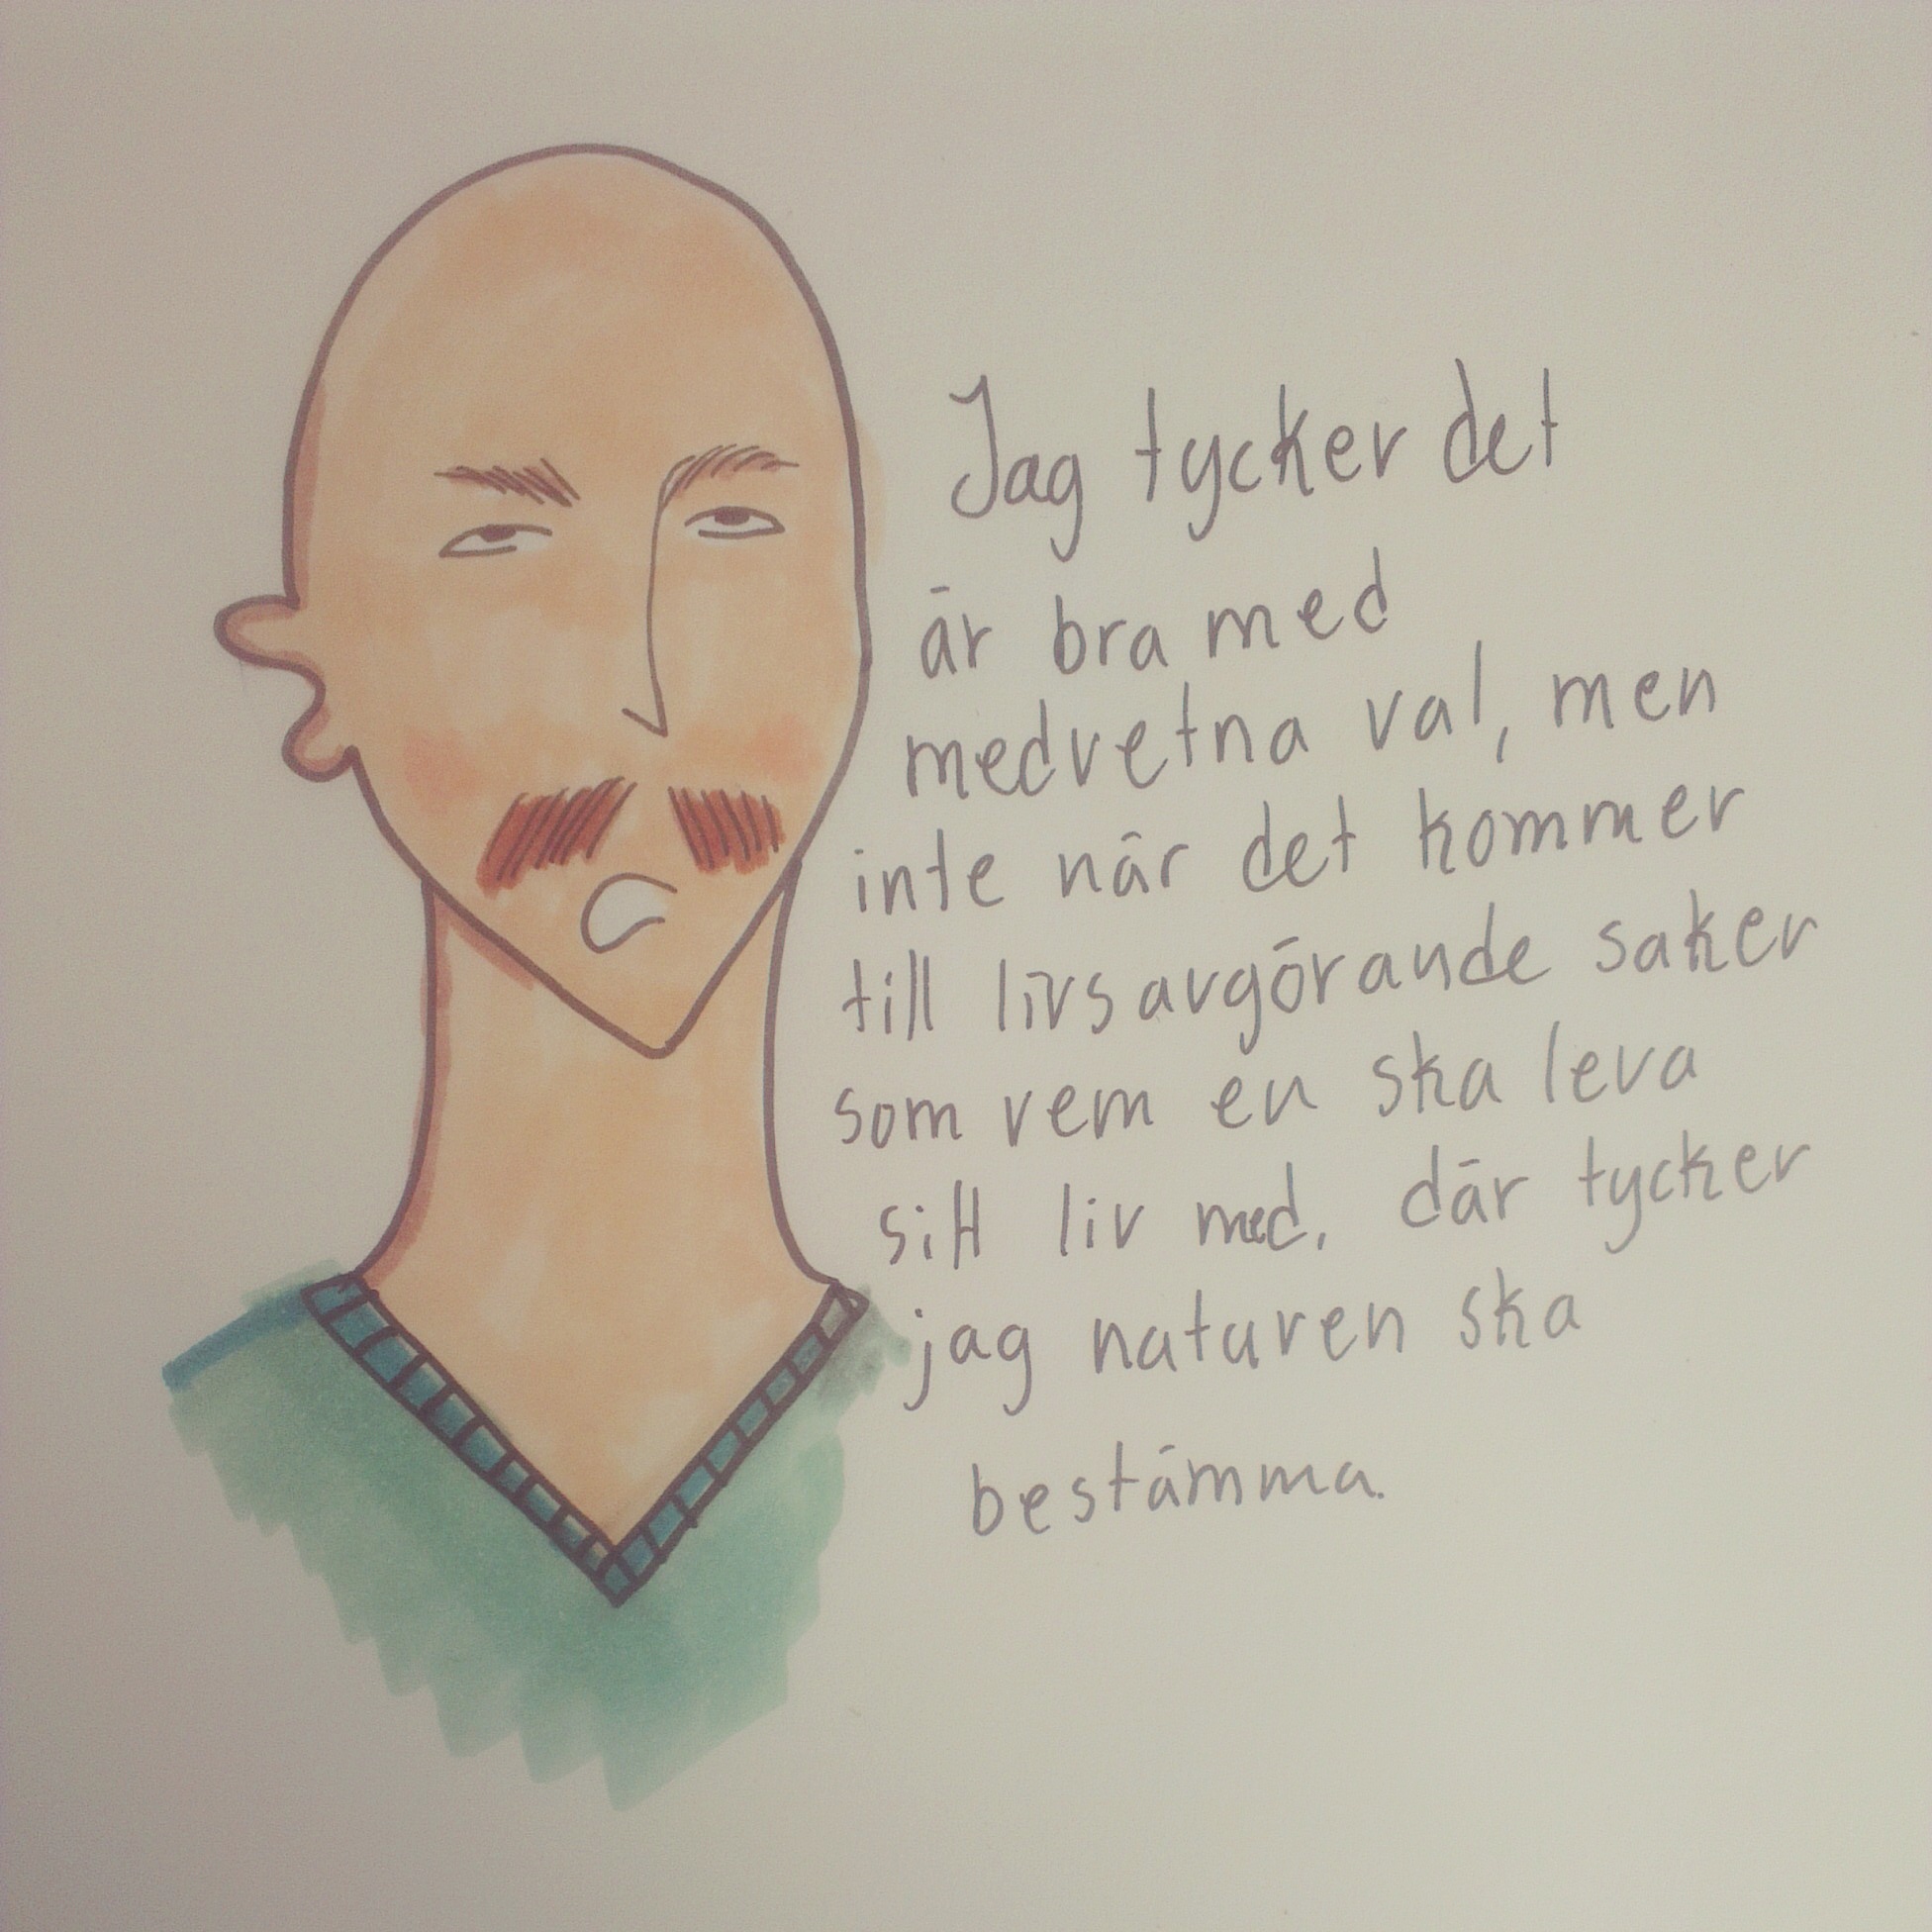 Jag tycker det
är bra med
medvetna val, men
inte när det kommer
till livsavgörande saker
som vem en ska leva
sitt liv med, där tycker
jag naturen ska
bestämma.